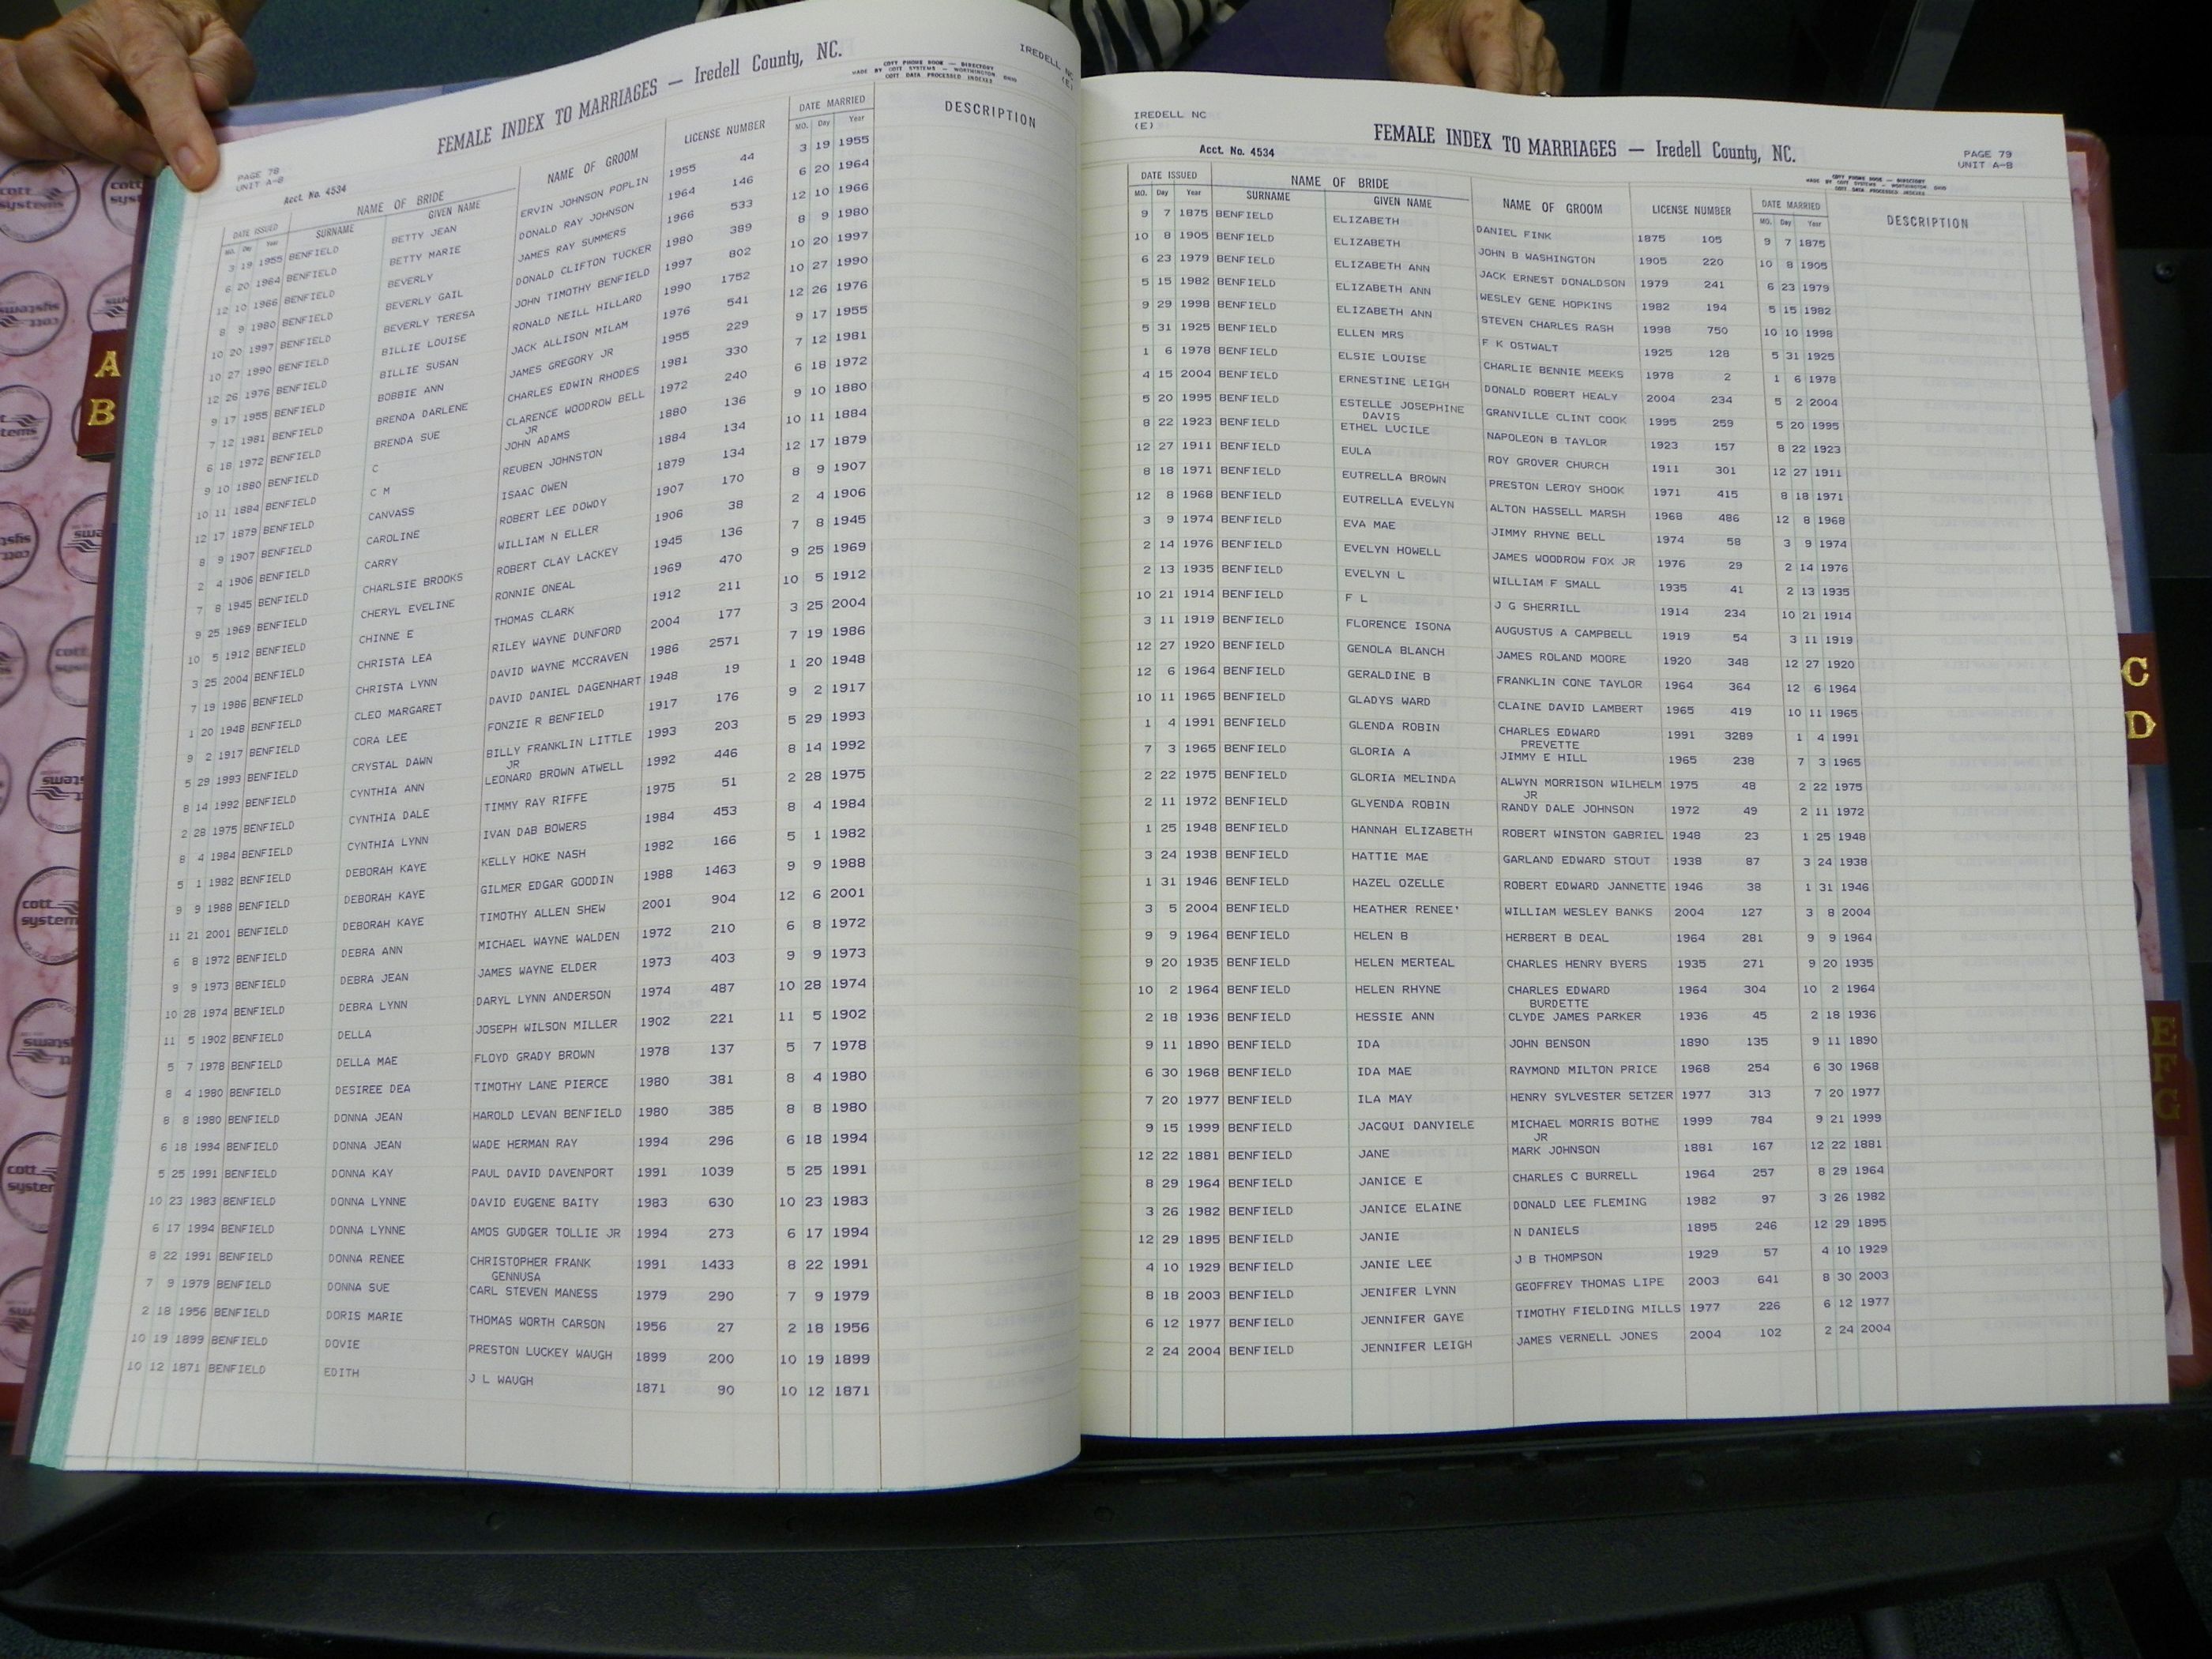 FEMALE INDEX TO MARRIAGES — Iredell County, NC.
COTT PHONE BOOK — DIRECTORY
MADE BY COTT SYSTEMS — WORTHINGTON OHIO
COTT DATA PROCESSED INDEXES
IREDELL NC
(E)
PAGE 78
UNIT A-B
Acct. No. 4534
DATE ISSUED NAME OF BRIDE NAME OF GROOM LICENSE NUMBER DATE MARRIED DESCRIPTION
MO. Day Year SURNAME GIVEN NAME MO. Day Year
3 19 1955 BENFIELD BETTY JEAN ERVIN JOHNSON POPLIN 1955 44 3 19 1955
6 20 1964 BENFIELD BETTY MARIE DONALD RAY JOHNSON 1964 146 6 20 1964
12 10 1966 BENFIELD BEVERLY JAMES RAY SUMMERS 1966 533 12 10 1966
8 9 1980 BENFIELD BEVERLY GAIL DONALD CLIFTON TUCKER 1980 389 8 9 1980
10 20 1997 BENFIELD BEVERLY TERESA JOHN TIMOTHY BENFIELD 1997 802 10 20 1997
10 27 1990 BENFIELD BILLIE LOUISE RONALD NEILL HILLARD 1990 1752 10 27 1990
12 26 1976 BENFIELD BILLIE SUSAN JACK ALLISON MILAM 1976 541 12 26 1976
9 17 1955 BENFIELD BOBBIE ANN JAMES GREGORY JR 1955 229 9 17 1955
7 12 1981 BENFIELD BRENDA DARLENE CHARLES EDWIN RHODES 1981 330 7 12 1981
6 18 1972 BENFIELD BRENDA SUE CLARENCE WOODROW BELL 1972 240 6 18 1972
JR
9 10 1880 BENFIELD C JOHN ADAMS 1880 136 9 10 1880
10 11 1884 BENFIELD C M REUBEN JOHNSTON 1884 134 10 11 1884
12 17 1879 BENFIELD CANVASS ISAAC OWEN 1879 134 12 17 1879
8 9 1907 BENFIELD CAROLINE ROBERT LEE DOWDY 1907 170 8 9 1907
2 4 1906 BENFIELD CARRY WILLIAM N ELLER 1906 38 2 4 1906
7 8 1945 BENFIELD CHARLSIE BROOKS ROBERT CLAY LACKEY 1945 136 7 8 1945
9 25 1969 BENFIELD CHERYL EVELINE RONNIE ONEAL 1969 470 9 25 1969
10 5 1912 BENFIELD CHINNE E THOMAS CLARK 1912 211 10 5 1912
3 25 2004 BENFIELD CHRISTA LEA RILEY WAYNE DUNFORD 2004 177 3 25 2004
7 19 1986 BENFIELD CHRISTA LYNN DAVID WAYNE MCCRAVEN 1986 2571 7 19 1986
1 20 1948 BENFIELD CLEO MARGARET DAVID DANIEL DAGENHART 1948 19 1 20 1948
9 2 1917 BENFIELD CORA LEE FONZIE R BENFIELD 1917 176 9 2 1917
5 29 1993 BENFIELD CRYSTAL DAWN BILLY FRANKLIN LITTLE 1993 203 5 29 1993
JR
8 14 1992 BENFIELD CYNTHIA ANN LEONARD BROWN ATWELL 1992 446 8 14 1992
2 28 1975 BENFIELD CYNTHIA DALE TIMMY RAY RIFFE 1975 51 2 28 1975
8 4 1984 BENFIELD CYNTHIA LYNN IVAN DAB BOWERS 1984 453 8 4 1984
5 1 1982 BENFIELD DEBORAH KAYE KELLY HOKE NASH 1982 166 5 1 1982
9 9 1988 BENFIELD DEBORAH KAYE GILMER EDGAR GOODIN 1988 1463 9 9 1988
11 21 2001 BENFIELD DEBORAH KAYE TIMOTHY ALLEN SHEW 2001 904 12 6 2001
6 8 1972 BENFIELD DEBRA ANN MICHAEL WAYNE WALDEN 1972 210 6 8 1972
9 9 1973 BENFIELD DEBRA JEAN JAMES WAYNE ELDER 1973 403 9 9 1973
10 28 1974 BENFIELD DEBRA LYNN DARYL LYNN ANDERSON 1974 487 10 28 1974
11 5 1902 BENFIELD DELLA JOSEPH WILSON MILLER 1902 221 11 5 1902
5 7 1978 BENFIELD DELLA MAE FLOYD GRADY BROWN 1978 137 5 7 1978
8 4 1980 BENFIELD DESIREE DEA TIMOTHY LANE PIERCE 1980 381 8 4 1980
8 8 1980 BENFIELD DONNA JEAN HAROLD LEVAN BENFIELD 1980 385 8 8 1980
6 18 1994 BENFIELD DONNA JEAN WADE HERMAN RAY 1994 296 6 18 1994
5 25 1991 BENFIELD DONNA KAY PAUL DAVID DAVENPORT 1991 1039 5 25 1991
10 23 1983 BENFIELD DONNA LYNNE DAVID EUGENE BAITY 1983 630 10 23 1983
6 17 1994 BENFIELD DONNA LYNNE AMOS GUDGER TOLLIE JR 1994 273 6 17 1994
8 22 1991 BENFIELD DONNA RENEE CHRISTOPHER FRANK 1991 1433 8 22 1991
GENNUSA
7 9 1979 BENFIELD DONNA SUE CARL STEVEN MANESS 1979 290 7 9 1979
2 18 1956 BENFIELD DORIS MARIE THOMAS WORTH CARSON 1956 27 2 18 1956
10 19 1899 BENFIELD DOVIE PRESTON LUCKEY WAUGH 1899 200 10 19 1899
10 12 1871 BENFIELD EDITH J L WAUGH 1871 90 10 12 1871
IREDELL NC
(E)
FEMALE INDEX TO MARRIAGES — Iredell County, NC.
Acct. No. 4534
PAGE 79
UNIT A-B
COTT PHONE BOOK — DIRECTORY
MADE BY COTT SYSTEMS — WORTHINGTON OHIO
COTT DATA PROCESSED INDEXES
DATE ISSUED NAME OF BRIDE NAME OF GROOM LICENSE NUMBER DATE MARRIED DESCRIPTION
MO. Day Year SURNAME GIVEN NAME MO. Day Year
9 7 1875 BENFIELD ELIZABETH DANIEL FINK 1875 105 9 7 1875
10 8 1905 BENFIELD ELIZABETH JOHN B WASHINGTON 1905 220 10 8 1905
6 23 1979 BENFIELD ELIZABETH ANN JACK ERNEST DONALDSON 1979 241 6 23 1979
5 15 1982 BENFIELD ELIZABETH ANN WESLEY GENE HOPKINS 1982 194 5 15 1982
9 29 1998 BENFIELD ELIZABETH ANN STEVEN CHARLES RASH 1998 750 10 10 1998
5 31 1925 BENFIELD ELLEN MRS F K OSTWALT 1925 128 5 31 1925
1 6 1978 BENFIELD ELSIE LOUISE CHARLIE BENNIE MEEKS 1978 2 1 6 1978
4 15 2004 BENFIELD ERNESTINE LEIGH DONALD ROBERT HEALY 2004 234 5 2 2004
5 20 1995 BENFIELD ESTELLE JOSEPHINE GRANVILLE CLINT COOK 1995 259 5 20 1995
DAVIS
8 22 1923 BENFIELD ETHEL LUCILE NAPOLEON B TAYLOR 1923 157 8 22 1923
12 27 1911 BENFIELD EULA ROY GROVER CHURCH 1911 301 12 27 1911
8 18 1971 BENFIELD EUTRELLA BROWN PRESTON LEROY SHOOK 1971 415 8 18 1971
12 8 1968 BENFIELD EUTRELLA EVELYN ALTON HASSELL MARSH 1968 486 12 8 1968
3 9 1974 BENFIELD EVA MAE JIMMY RHYNE BELL 1974 58 3 9 1974
2 14 1976 BENFIELD EVELYN HOWELL JAMES WOODROW FOX JR 1976 29 2 14 1976
2 13 1935 BENFIELD EVELYN L WILLIAM F SMALL 1935 41 2 13 1935
10 21 1914 BENFIELD F L J G SHERRILL 1914 234 10 21 1914
3 11 1919 BENFIELD FLORENCE ISONA AUGUSTUS A CAMPBELL 1919 54 3 11 1919
12 27 1920 BENFIELD GENOLA BLANCH JAMES ROLAND MOORE 1920 348 12 27 1920
12 6 1964 BENFIELD GERALDINE B FRANKLIN CONE TAYLOR 1964 364 12 6 1964
10 11 1965 BENFIELD GLADYS WARD CLAINE DAVID LAMBERT 1965 419 10 11 1965
1 4 1991 BENFIELD GLENDA ROBIN CHARLES EDWARD 1991 3289 1 4 1991
PREVETTE
7 3 1965 BENFIELD GLORIA A JIMMY E HILL 1965 238 7 3 1965
2 22 1975 BENFIELD GLORIA MELINDA ALWYN MORRISON WILHELM 1975 48 2 22 1975
JR
2 11 1972 BENFIELD GLYENDA ROBIN RANDY DALE JOHNSON 1972 49 2 11 1972
1 25 1948 BENFIELD HANNAH ELIZABETH ROBERT WINSTON GABRIEL 1948 23 1 25 1948
3 24 1938 BENFIELD HATTIE MAE GARLAND EDWARD STOUT 1938 87 3 24 1938
1 31 1946 BENFIELD HAZEL OZELLE ROBERT EDWARD JANNETTE 1946 38 1 31 1946
3 5 2004 BENFIELD HEATHER RENEE' WILLIAM WESLEY BANKS 2004 127 3 8 2004
9 9 1964 BENFIELD HELEN B HERBERT B DEAL 1964 281 9 9 1964
9 20 1935 BENFIELD HELEN MERTEAL CHARLES HENRY BYERS 1935 271 9 20 1935
10 2 1964 BENFIELD HELEN RHYNE CHARLES EDWARD 1964 304 10 2 1964
BURDETTE
2 18 1936 BENFIELD HESSIE ANN CLYDE JAMES PARKER 1936 45 2 18 1936
9 11 1890 BENFIELD IDA JOHN BENSON 1890 135 9 11 1890
6 30 1968 BENFIELD IDA MAE RAYMOND MILTON PRICE 1968 254 6 30 1968
7 20 1977 BENFIELD ILA MAY HENRY SYLVESTER SETZER 1977 313 7 20 1977
9 15 1999 BENFIELD JACQUI DANYIELE MICHAEL MORRIS BOTHE 1999 784 9 21 1999
JR
12 22 1881 BENFIELD JANE MARK JOHNSON 1881 167 12 22 1881
8 29 1964 BENFIELD JANICE E CHARLES C BURRELL 1964 257 8 29 1964
3 26 1982 BENFIELD JANICE ELAINE DONALD LEE FLEMING 1982 97 3 26 1982
12 29 1895 BENFIELD JANIE N DANIELS 1895 246 12 29 1895
4 10 1929 BENFIELD JANIE LEE J B THOMPSON 1929 57 4 10 1929
8 18 2003 BENFIELD JENIFER LYNN GEOFFREY THOMAS LIPE 2003 641 8 30 2003
6 12 1977 BENFIELD JENNIFER GAYE TIMOTHY FIELDING MILLS 1977 226 6 12 1977
2 24 2004 BENFIELD JENNIFER LEIGH JAMES VERNELL JONES 2004 102 2 24 2004
A
B
C
D
E
F
G
cott
systems